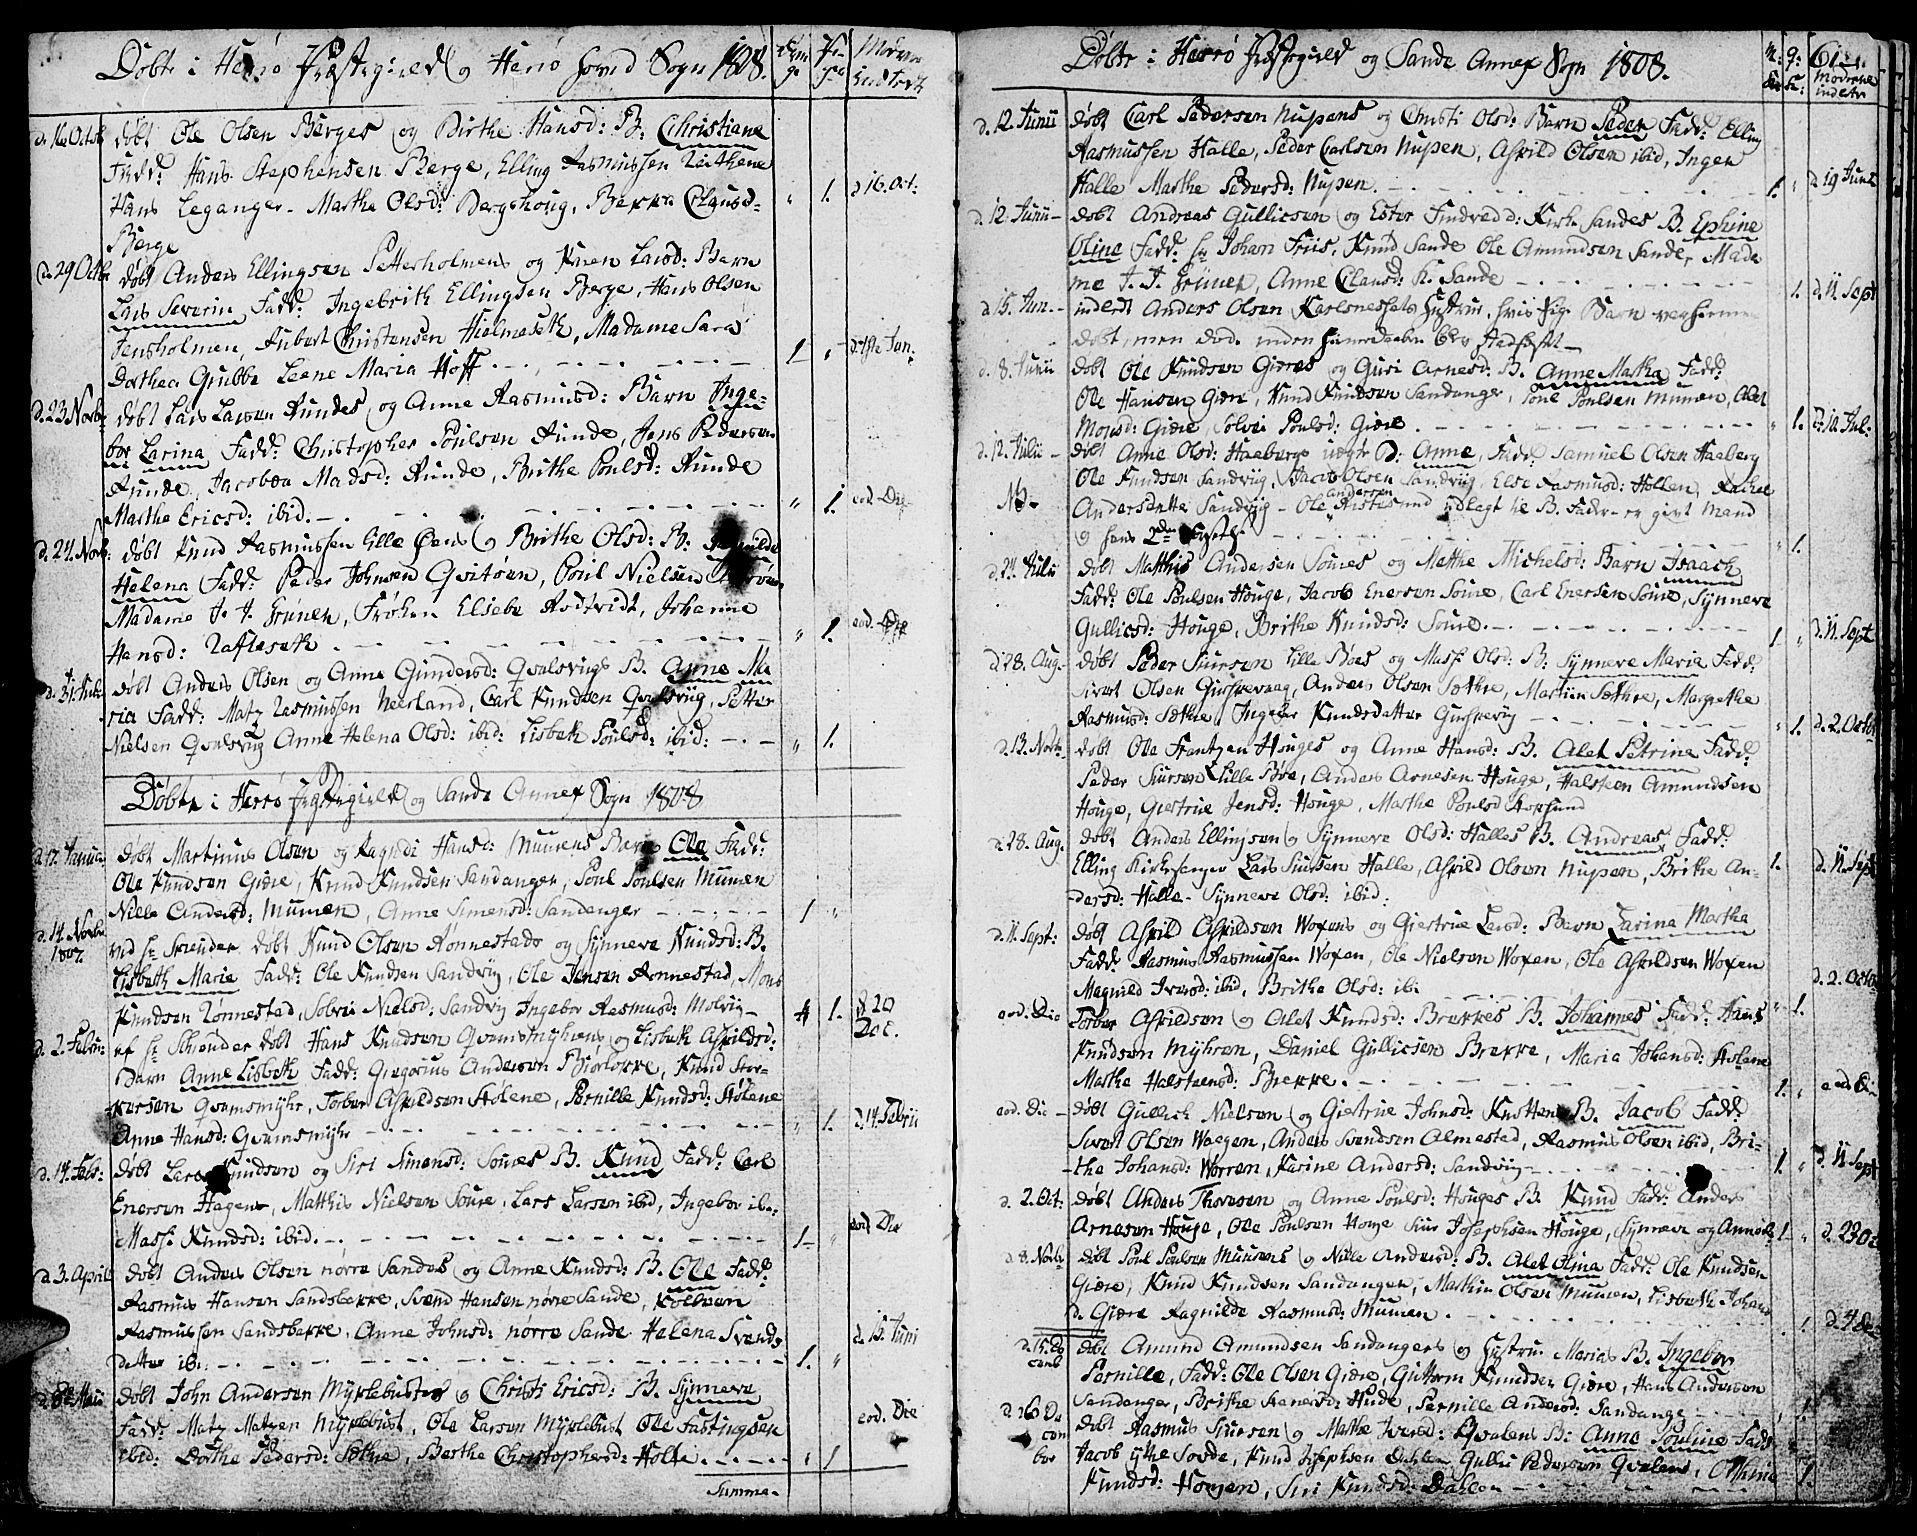 Døbte i Herrø Præstegield og Herrø hoved Sogn 1808.
d. 16 Octob døbt Ole Olsen Berges og Birthe Hansd: B. Christiane
Fadd: Hans Stephensen Berge, Elling Rasmussen
Hans Leganger - Marthe Olsd: Bergshoug, Clausd-
Berge " 1. d 16. Oct:
d. 29 Octbr døbt Anders Ellingsen Petterholmens og Karen Larsd: Barn
Lars Severin Fadd: Ingebrith Ellingsen Berge, Hans Olsen
Jensholmen, Hubert Christensen Hielmeseth, Madame Sara
Dorthea Grubbe Leene Maria Hoff 1 "
d. 23 Novbr døbt Lars Larsen Rundes og Anne Rasmusd: Barn Inge-
bor Larina Fadd: Christopher Poulsen Runde, Jens Pedersen
Runde, Jacobea Madsd: Runde, Brithe Poulsd: Runde
Marthe Ericsd: ibid. " 1. eod. Die
d. 27. Novb: døbt Knud Rasmussen Lille Øens og Brithe Olsd: B:
Helena Fadd: Peder Johnsen Qvitøen, Poul Nielsen
Madame J. J. Grüner, Frøken Elsebe Rodtvidt, Johanne
Hansd: " 1. eod. Die
døbt Anders Olsen og Anne Gundersd: Qvalsvigs B. Anne Ma
ria Fadd: Matz Rasmussen Neerland, Carl Knudsen Qvalsviig, Petter
Nielsen Qvalsvug Anne Helena Olsd: ibid: Lisbeth Poulsd: ibid: " 1.
Døbte i Herrø Præstegield og Sande Annex Sogn 1808
d. 17. Janua døbt Martinus Olsen og Ragndi Hansd: Mumens Barn Ole Fadd:
Ole Knudsen Giøre, Knud Knudsen Sandanger, Poul Poulsen Mumen
Nille Andersd: Mumen, Anne Simensd: Sandanger 1 "
d. 14. Novbr 1807. ved Hr Strender døbt Knud Olsen Rønnestads og Synneve Knudsd: B.
Lisbeth Marie Fadd: Ole Knudsen Sandviig, Ole Jensen Rønnestad, Mons
Knudsen Rønnestad, Solvei Nielsd: Sandvig Ingebor Rasmusd: Molviig 1. d 20 Dec.
d. 2. Febru: af Hr Schrender døbt Hans Knudsen Qvamsmyhrens og Lisbeth Aslildsd:
Barn Anne Lisbeth Fadd: Gregorius Andersen Biørlokke, Knud Stor-
kersen Qvamsmyhr, Torber Asfildsen Hølene, Pernille Knudsd: Hølene
Anne Hansd: Qvamsmyhr " 1. d 14. Febrii
d. 14. Febr: døbt Lars Knudsen og Siri Simensd: Soures B. Knud Fadd: Carl
Enersen Hagens, Matthis Nielsen Soure, Lars Larsen ibid, Ingebor ib:
Massi Knudsd: ibid. 1 " eod Die
d. 3. April døbt Anders Olsen nørre Sandes og Anne Knudsd: B. Ole Fadd:
Rasmus Hansen Sandsbakke, Svend Hansen nørre Sande, Kolbeen
Rasmussen Sandsbakke, Anne Johnsd: nørre Sande Helena Svends
datter ib: 1. " d. 15. Juni
d. 8de Maii døbt John Andersen Myklebusts og Christi Ericsd: B. Synneve
Fadd: Matz Matzen Myklebust, Ole Larsen Myklebust Ole Fastingsen
ibid: Dorthe Pedersd: Sætne, Berthe Christophersd: Holte " 1 eod. Die
Summa.
Døbte i Herrø Præstegield og Sande Annex Sogn 1808.
61
d. 12. Junii døbt Carl Pedersen Nupens og Christi Olsd: Barn Peder Fadd: Elling
Rasmussen Halle, Peder Carlsen Nupen, Asfild Olsen ibid, Inger
Halle Marthe Pedersd: Nupen. 1. " d 19 Junii
d. 12. Junii - døbt Andreas Gullicsen og Ester Findved d: Kirk Sandes B. Ephine
Oline Fadd: Hr Johan Friis, Knud Sande Ole Amundsen Sande, Mada
me J. J. Grüner, Anne Clausd: K. Sande 1. d. 11. Sept
d 15. Jun. - inderdt Anders Olsen Karlsnessets Hustrue, hvis Barn var hiemme
døbt, men døde, inden
d. 8. Junii døbt Ole Knudsen Giøres og Guri Arnesd: B. Anne Martha Fadd:
Ole Hansen Giøre, Knud Knudsen Sandanger, Poul Poulsen Mumen, Alet
Monsd: Giøre, Solvei Poulsd: Giøre " 1. d 10. Jul.
d. 12. Julii - døbt Anne Olsd: Haabergs uægte B: Anne, Fadd: Samuel Olsen Haaberg
NB - Ole Knudsen Sandviig, Jacob Olsen Sandviig, Else Rasmusd: Hollen, Rachel
Andersdatter Sandviig - Ole Andersen udlagt til B. Fader - er givt Mand
og hans 2den " 1.
d. 24 Julii døbt Matthis Andersen Soures og Mathe Michelsd: Barn Isaach
Fadd: Ole Poulsen Houge, Jacob Enersen Soure, Carl Enersen Soure, Synneve
Gullicsd: Houge, Brithe Knudsd: Soure. 1. " d. 11. Sept
d. 28. Aug. - døbt Peder Siursen Lille Bøes og Massi Olsd: B: Synneve Marie Fadd:
Sivert Olsen Gurskevaag, Anders Olsen Sæthre, Martin Sæthre, Margrethe
Rasmusd: Sæthre, Ingebor Knudsdatter Gurskeviig " 1. d. 2. Octbr
d. 13. Novb. døbt Ole Frantzen Houges og Anne Hansd: B. Alet Petrina Fadd:
Peder Siursen Lille Bøe, Anders Arnesen Houge, Halsteen Amundsen
Houge, Giertrue Jensd: Houge, Marthe Poulsd
d. 28. Aug. døbt Anders Ellingsen og Synneve Olsd: Halles B. Andreas Fadd:
Elling Kirkesanger Lars Siursen Halle, Asfild Olsen Nupen, Brithe An-
dersd: Halle - Synneve Olsd: ibid. 1. d. 11. Sept
d. 11. Sept: døbt Asfild Asfildsen Woxens og Giertrue Larsd: Barn Larina Martha
Fadd: Rasmus Rasmussen Woxen, Ole Nielsen Woxen, Ole Asfildsen Woxen
Magnild Iversd: ibid, Brithe Olsd: ibi " 1. d. 2. Octob
eod. Die Torber Asfildsen og Alet Knudsd: Brekkes B. Johannes Fadd: Hans
Knudsen Myhren, Daniel Gullicsen Brekke, Maria Johansd: Hølene
Marthe Halsteensd: Brekke. 1. " eod Di
eod. Die - døbt Gullich Nielsen og Giertrue Johnsd: B. Jacob Fadd:
Sivert Olsen Waagen, Anders Svendsen Almestad, Rasmus Olsen ibid, Bri-
the Johansd: Worren, Karine Andersd: Sandviig 1. " d. 11 Sept
d. 2. Oct: døbt Anders Thoresen og Anne Poulsd: Houges B. Knud Fadd: Anders
Arnesen Houge, Ole Poulsen Houge Siur Josephsen Houge, Synneve og Anne ib 1. " d. 23 Oc
d 8. Novb. døbt Poul Poulsen Mumens og Nille Andersd: B. Alet Olina Fadd: Ole Knudsen
Giøre, Knud Knudsen Sandanger, Marthin Olsen Mumen, Lisbeth Johan
d. Giøre Ragnilde Rasmusd: Mumen. 1. d. 4 De
d. 15. De cemb døbt Amund Amundsen Sandangers og Hustrue Marias B. Ingebor
Pernille, Fadd: Ole Olsen Giøre, Guttorm Knudsen Giøre, Hans Andersen
Sandanger, Brithe Hude, Pernille Andersd: Sandange " 1.
d. 26 De cem ber døbt Rasmus Siursen og Mathe Iversd: Qvalens B: Anne Pouline Fadd:
Jacob ytre Sovde, Knud Jossepsen Dahle, Gullic Pedersen Qvalens,
Knudsd: Homen, Siri Knudsd: Dalen 1.